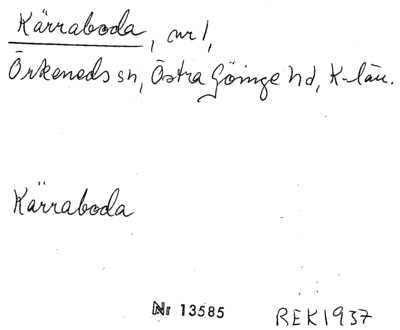 Kärraboda, nr 1,
Örkeneds sn, Östra Göinge hd, K-län.
Kärraboda
Nr 13585 REK 1937